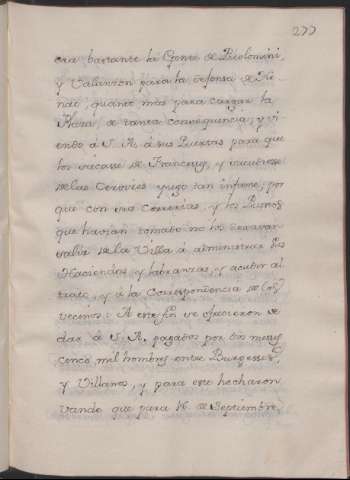 277
era bastante la Gente de Picolomini,
y Balanzon para la defensa de Di-
nat, quanto mas para cargar la
Plaza, de tanta consequencia; y vi-
endo á S. A. á sus Puertas para que
los sacasse de Franceses, y sacudiesse
de las Cervices yugo tan infame; por
que con sus Correrias, y los Puestos
que havian tomado no los dexavan
salir de la Villa á administrar sus
Haciendas, y labranzas, y acudir al
trato, y á la Correspondencia de los
vecinos: A este fin se ofrecieron se
das á S. A. pagados por dos meses
cinco mil hombres entre Burgeses,
y Villanos, y para este hecharon
vando que para 16. de Septiembre,